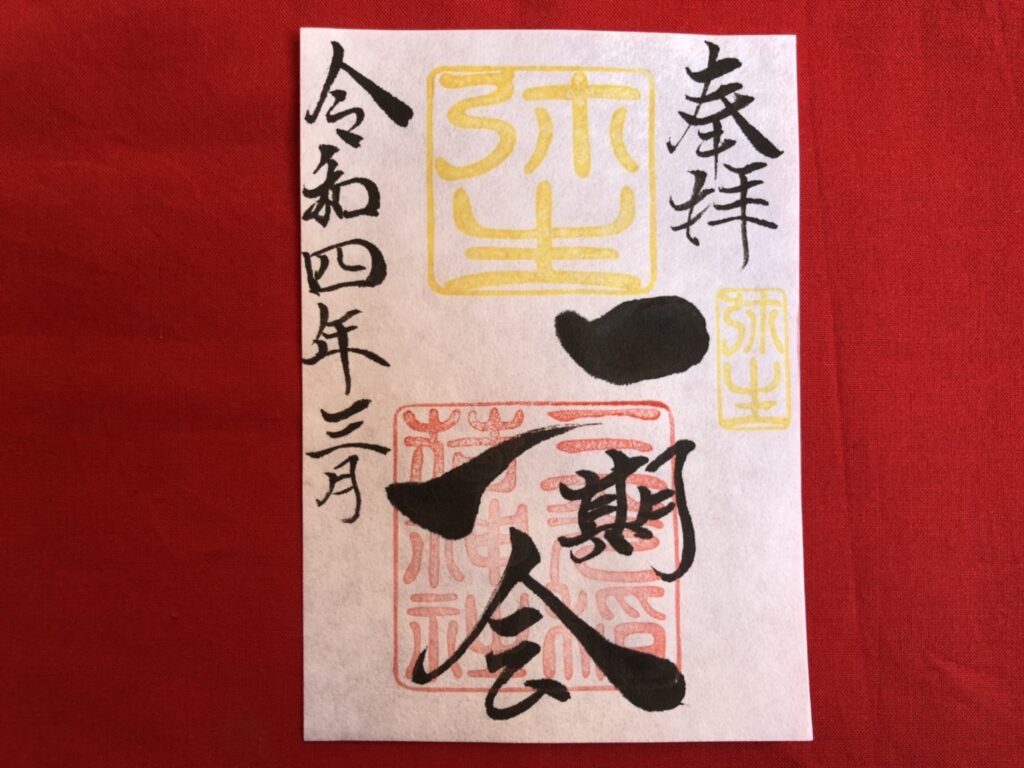 奉拝
弥生
弥生
一期
一会
三光稲荷神社
令和四年三月